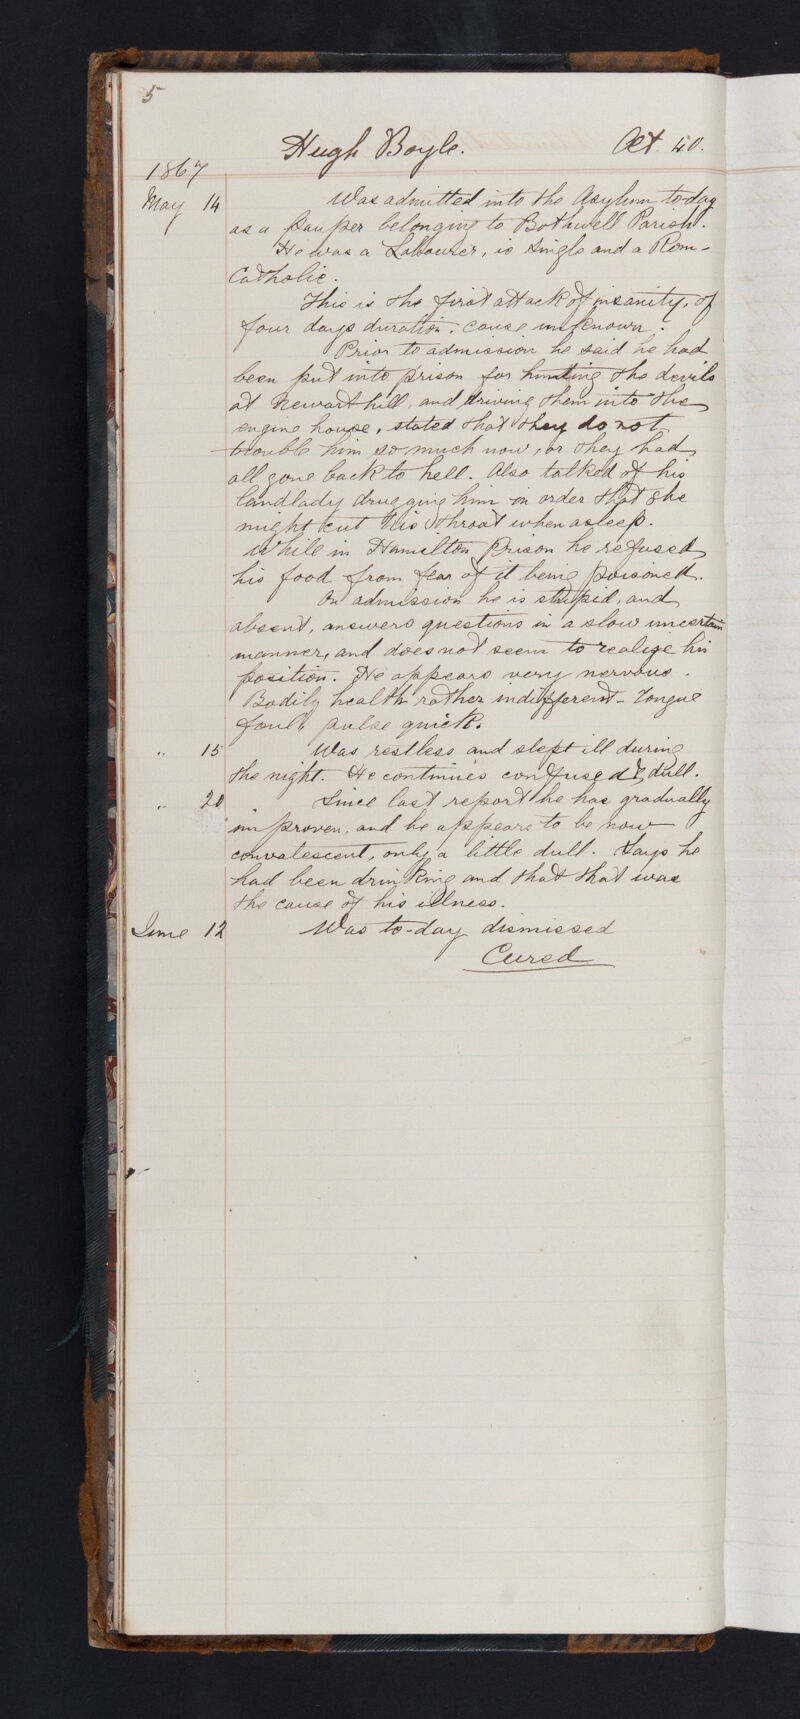 5
Hugh Boyle. Aet. 40.
1867
May 14 Was admitted into the Asylum to-day
as a pauper belonging to Bothwell Parish.
He was a Labourer, is single and a Rom-
Catholic.
This is the first attack of insanity, of
four days duration. Cause unknown.
Prior to admission he said he had
been put into prison for hunting the devils
at Newarthill, and driving them into the
engine house, stated that they do not
trouble him so much now, or they had
all gone back to hell. Also talked of his
landlady drugging him in order that she
might cut his throat when asleep.
While in Hamilton Prison he refused
his food from fear of it being poisoned.
On admission he is stupid, and
absent, answers questions in a slow uncertain
manner, and does not seem to realize his
position. He appears very nervous.
Bodily health rather indifferent - Tongue
foul & pulse quick.
" 15 Was restless and slept ill during
the night. He continues confused & dull.
" 20 Since last report he has gradually
improven, and he appears to be now
convalescent, only a little dull. Says he
had been drinking and that that was
the cause of his illness.
June 12 Was to-day dismissed
Cured